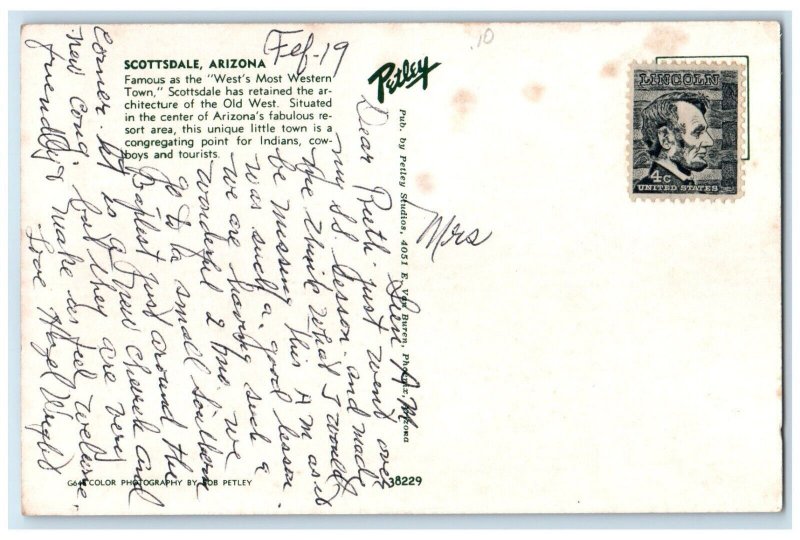 SCOTTSDALE, ARIZONA
Famous as the "West's Most Western
Town," Scottsdale has retained the ar-
chitecture of the Old West. Situated
in the center of Arizona's fabulous re-
sort area, this unique little town is a
congregating point for Indians, cow-
boys and tourists.
Petley
Pub. by Petley Studios, 4051 E. Van Buren, Phoenix, Arizona
LINCOLN
4c
UNITED STATES
.10
Feb-19
Sun A.M.
Dear Ruth just went over
my S.S. lesson and made
me think what I would
be missing this A M as it
was such a good lesson.
we are having such a
wonderful time. we
go to a small Southern
Baptist just around the
corner. It is a new church and
new Cong. but they are very
friendly & make us feel welcome.
Love Hazel Wright
Mrs
COLOR PHOTOGRAPHY BY BOB PETLEY
38229